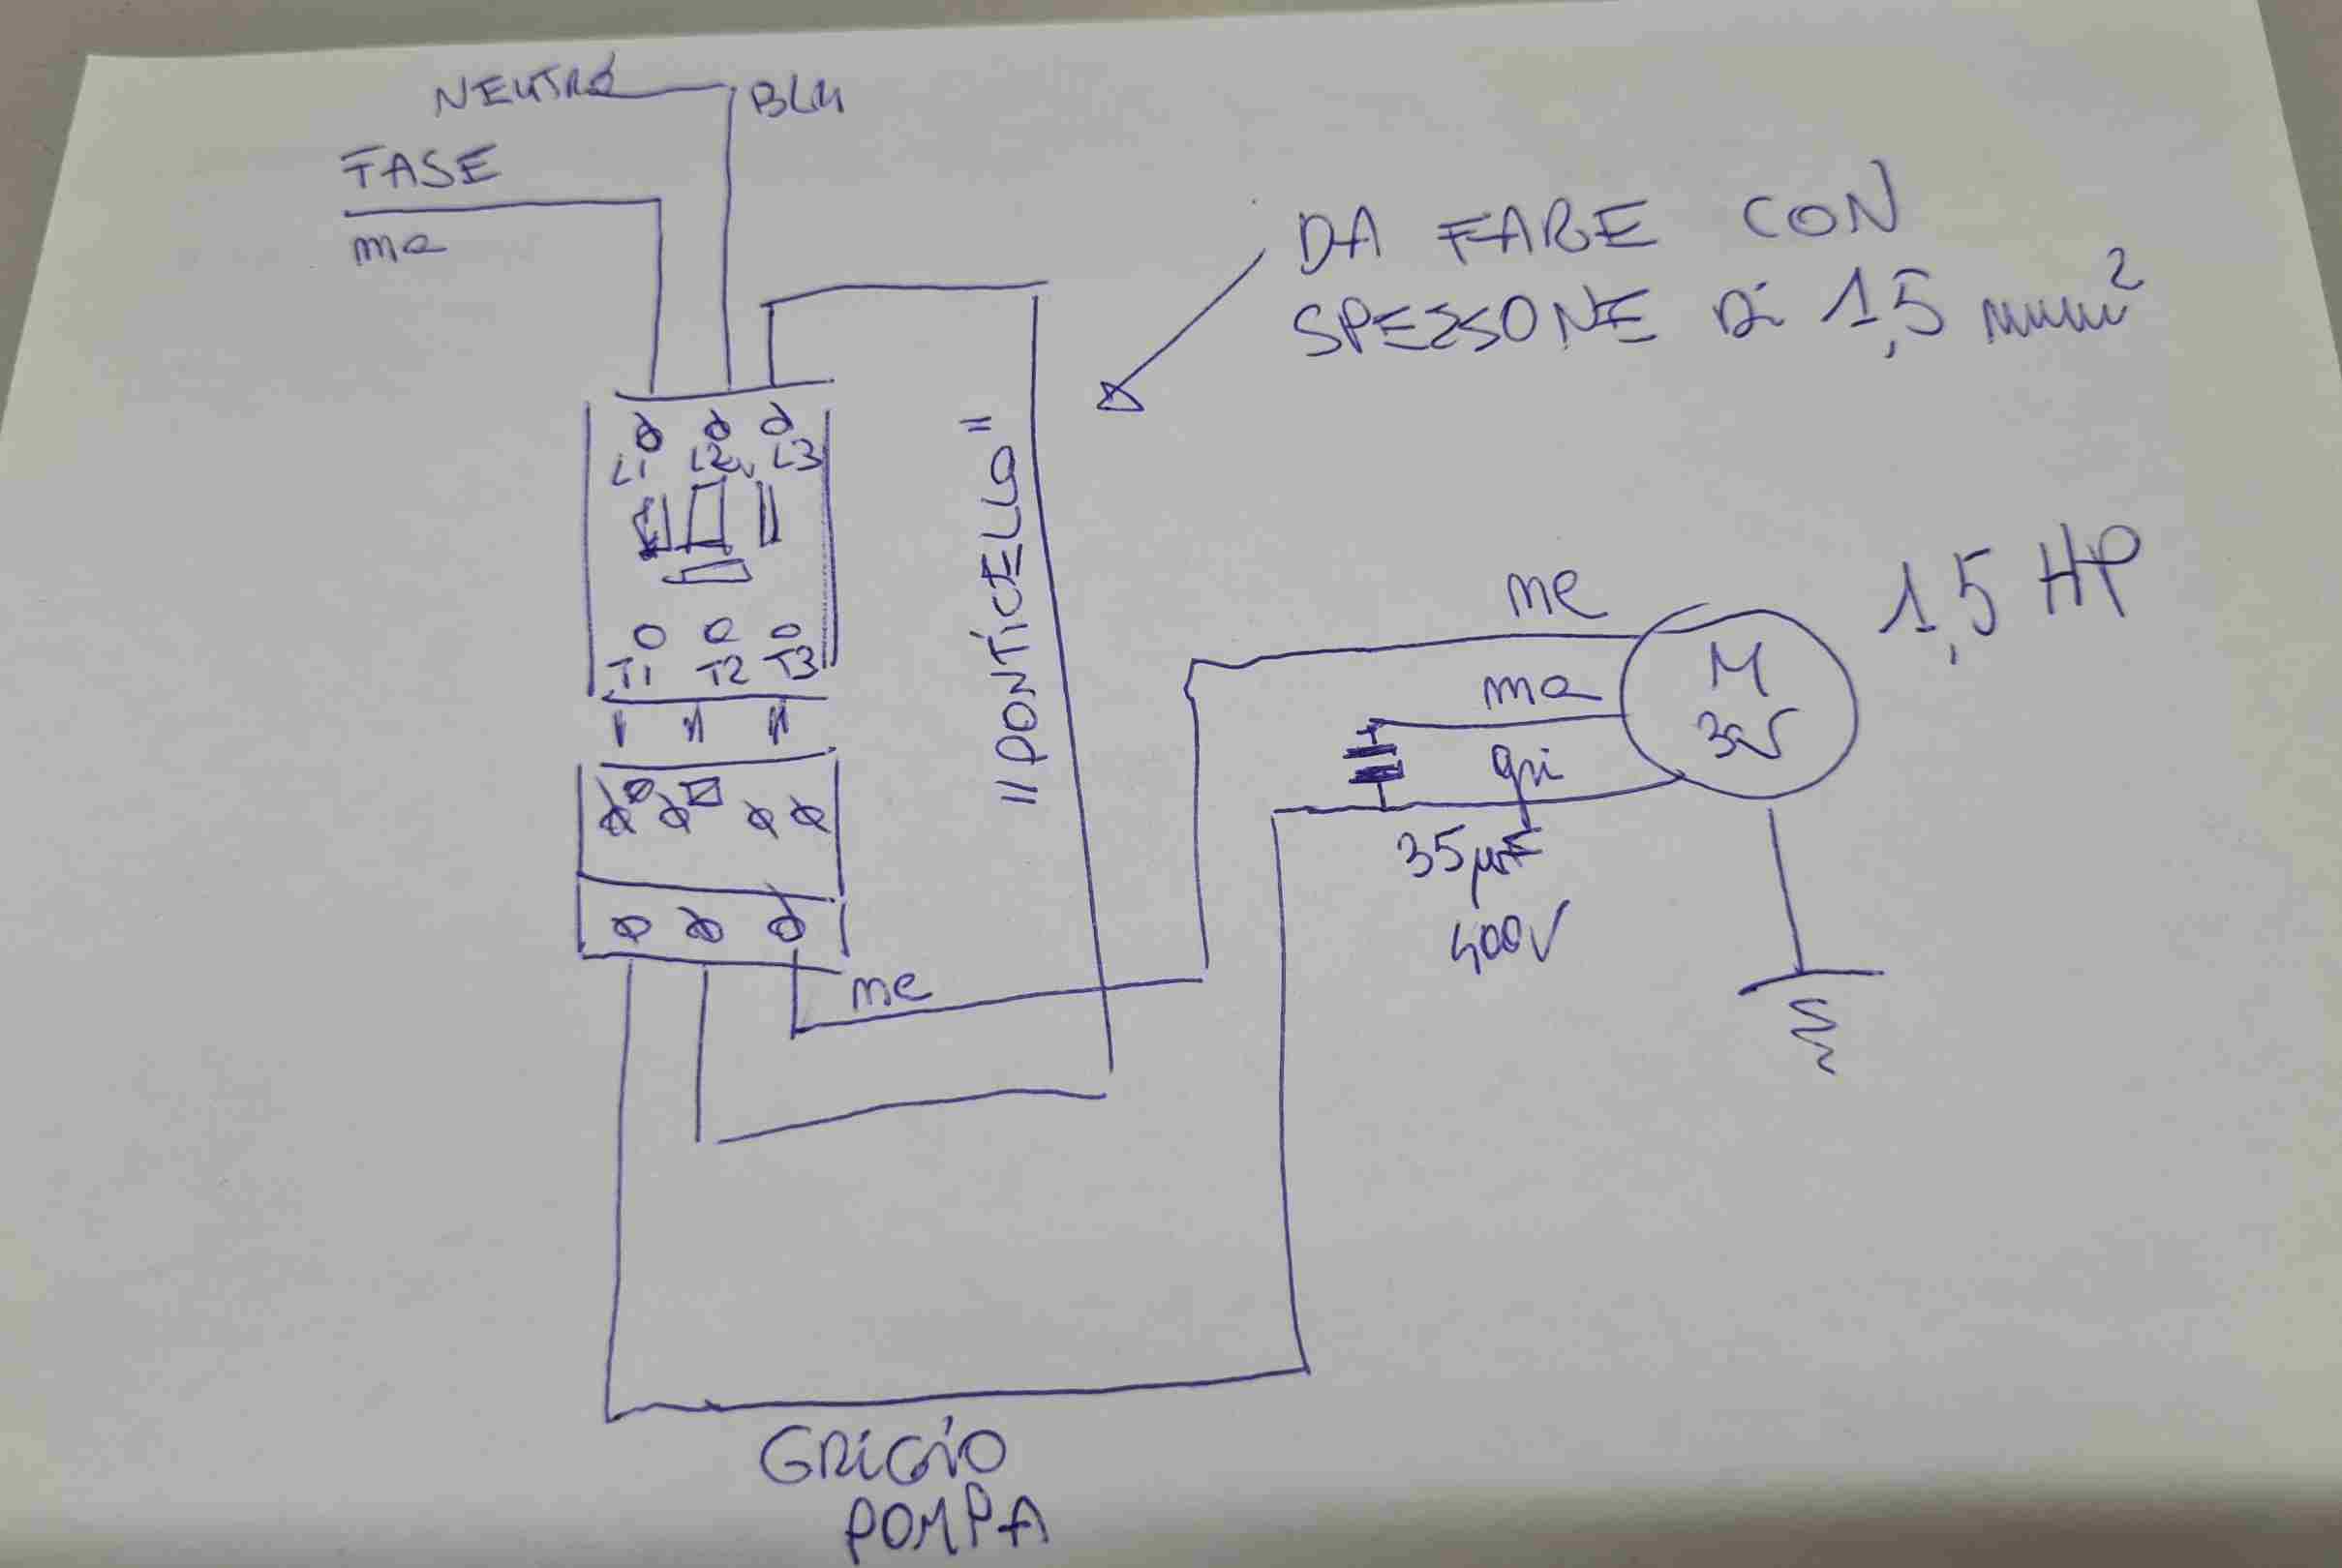 NEUTRO
BLU
FASE
ma
DA FARE CON
SPEZZONE DI 1,5 mm²
L1 L2 L3
T1 T2 T3
"PONTICELLO"
me
ma
gri
M
1,5 HP
35µF
400V
me
GRIGIO
POMPA